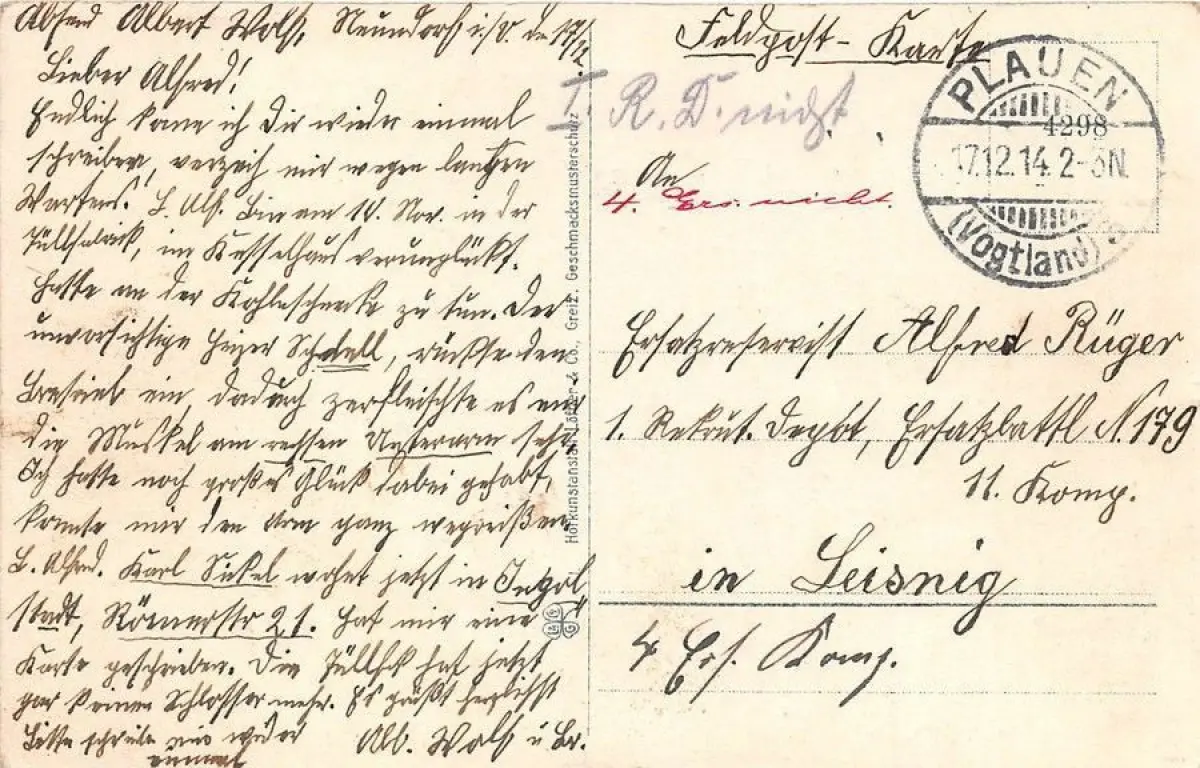 Absend Albert Wolf, Neundorf i./V. de 17/12.
Lieber Alfred!
Endlich kann ich Dir wieder einmal
schreiben, verzeih mir wegen langen
Wartens. L. Alf. Bin am 10. Nov. in der
Tüllfabrick, im Kesselhaus verunglückt.
Hatte an der Kohlenschnecke zu tun. Der
unvorsichtige Heizer Schnell, rückte den
Betrieb ein, dadurch zerfleischte es mir
die Muskel am rechten Unterarm sehr.
Ich hatte noch großes Glück dabei gehabt,
konnte mir den Arm ganz wegreißen.
L. Alfred. Karl Sickel wohnt jetzt in Ingol
stadt, Römerstr 21. Hat mir eine
Karte geschrieben. Die Tüllfbk hat jetzt
gar keinen Schlosser mehr. Es grüßt herzlichst
Bitte schreibe mir wieder
einmal
Alb. Wolf u Br.
Hofkunstanstalt Löffler & Co., Greiz. Geschmacksmusterschutz
Feldpost-Karte
I. R. D. nicht
An
4. Ers. nicht.
PLAUEN
4298
17.12.14. 2-3N.
(Vogtland)
Ersatzreservist Alfred Rüger
1. Rekrut. Depot, Ersatzbattl N. 179
11. Komp.
in Leisnig
4 Ers. Komp.